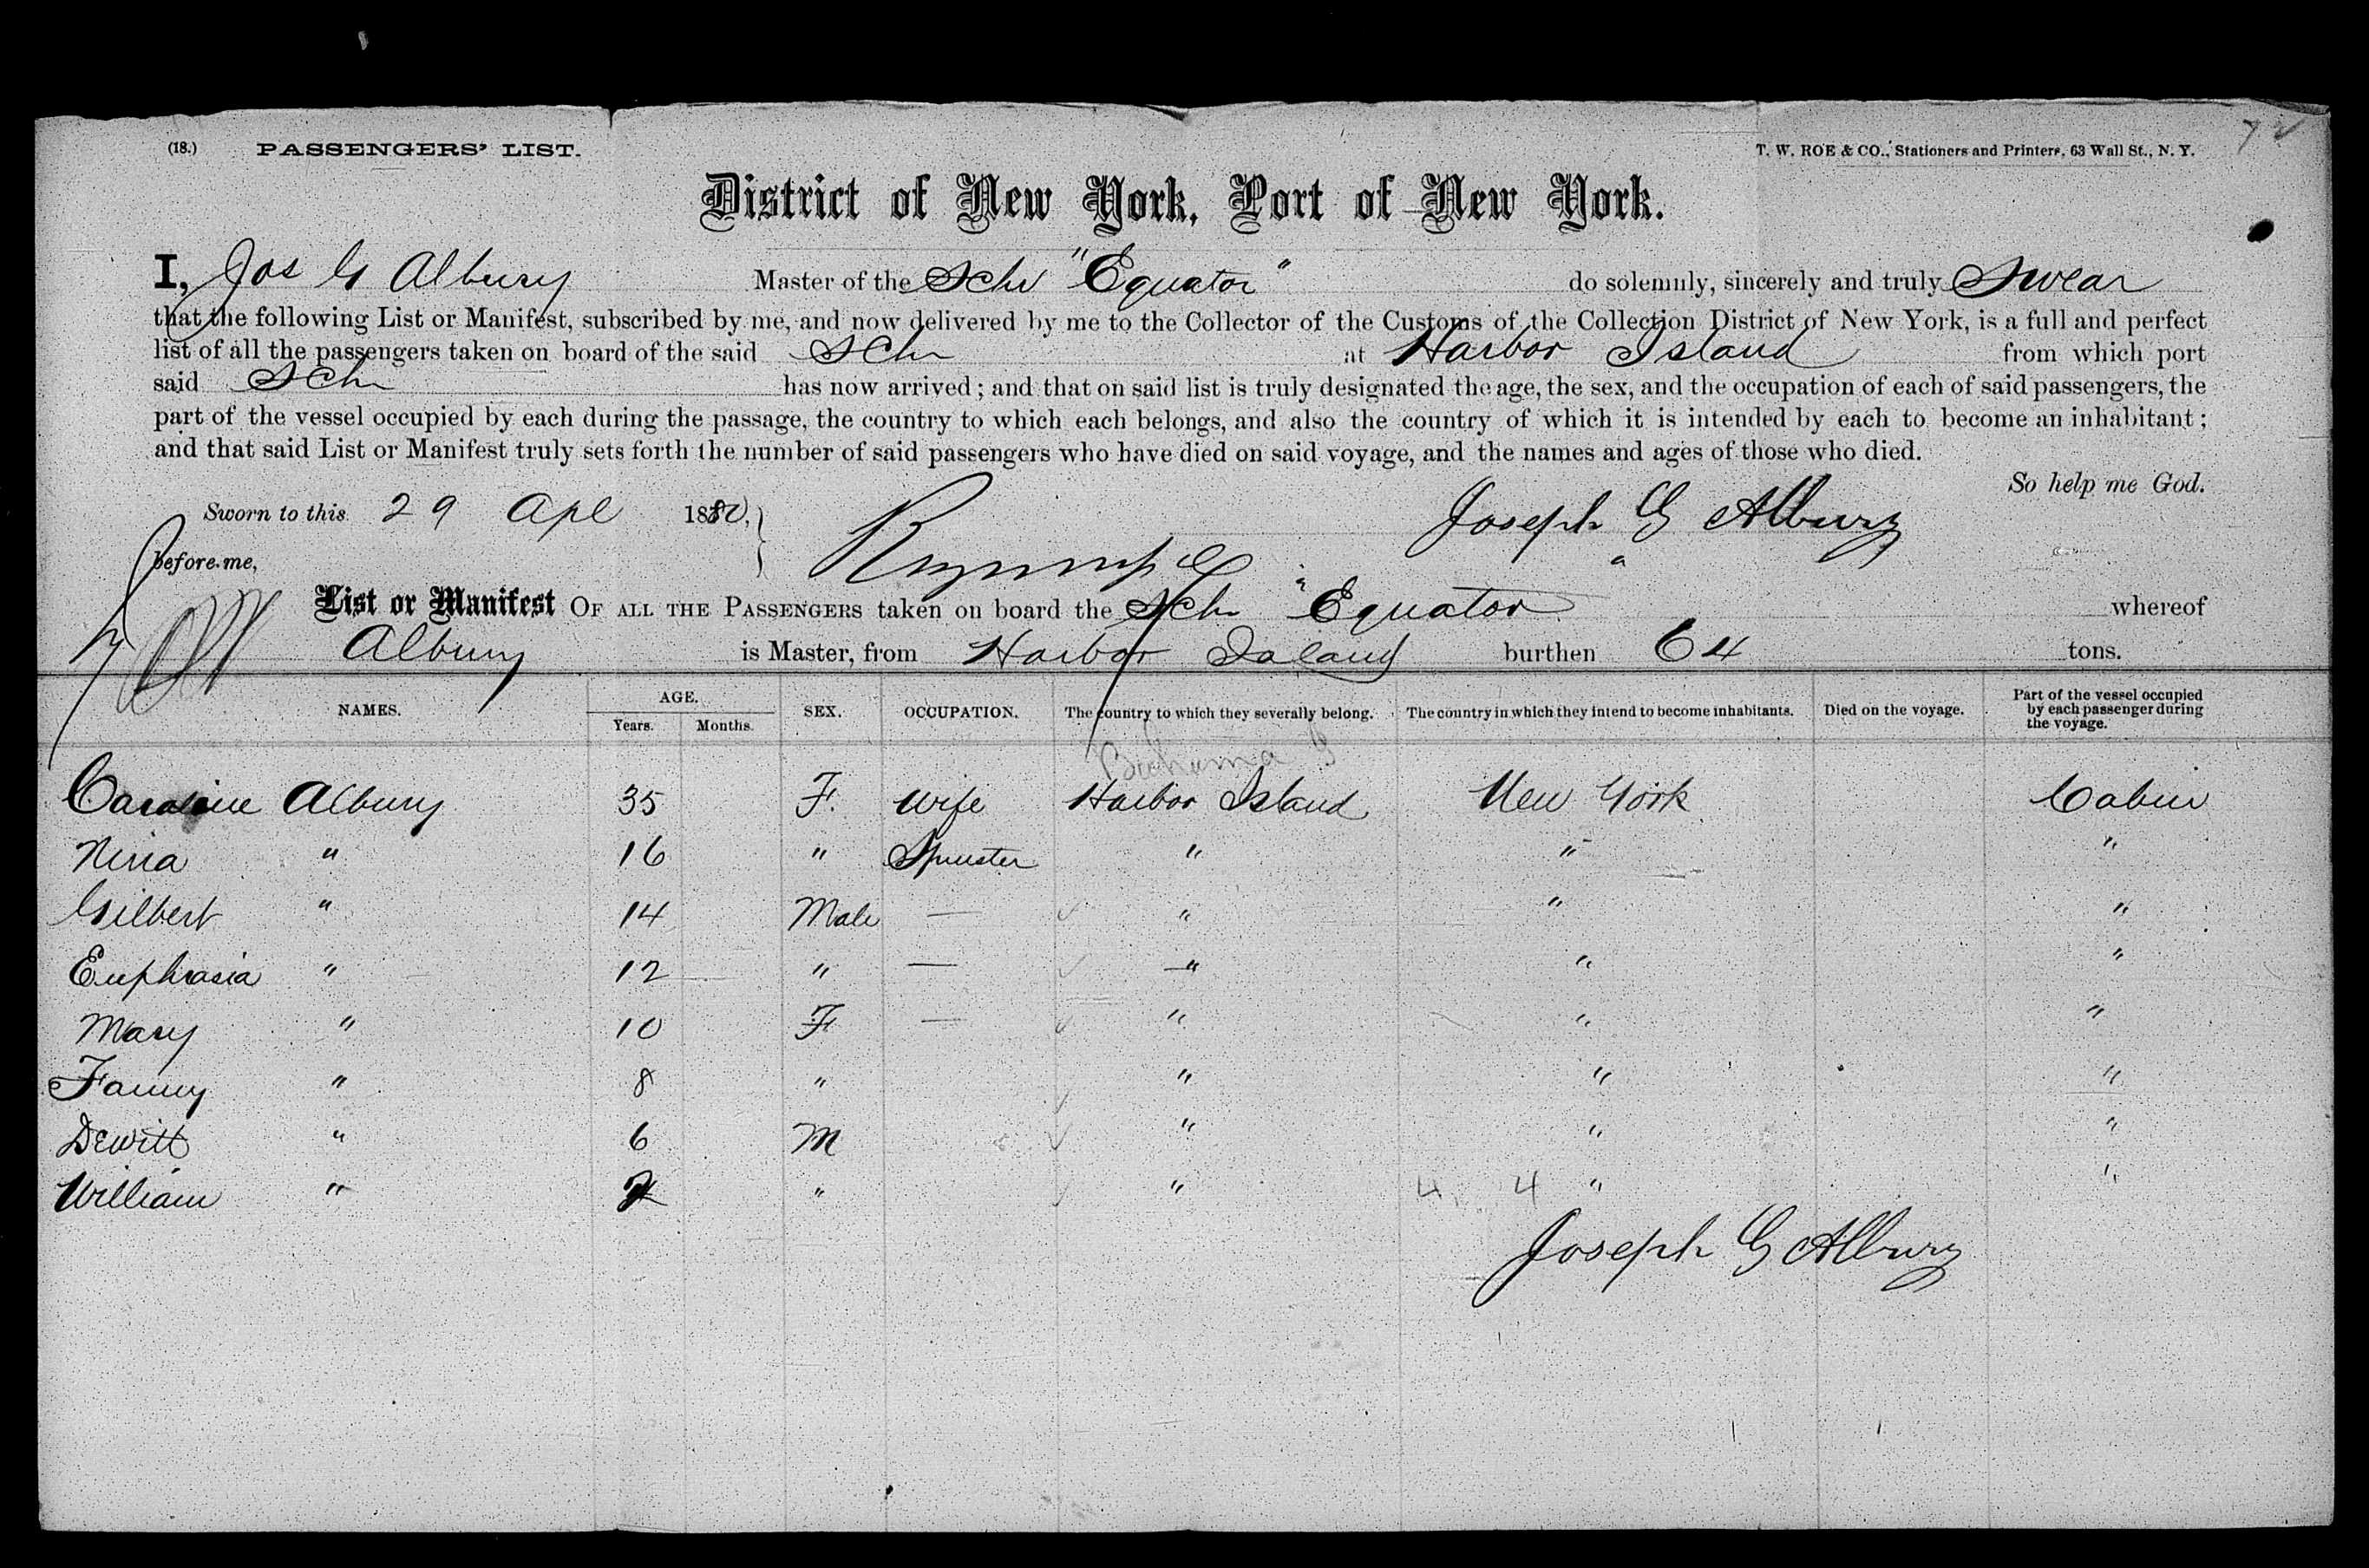 (18.) PASSENGERS' LIST. T. W. ROE & CO., Stationers and Printers, 63 Wall St., N. Y.
District of New York, Port of New York.
I, Jos G Albury Master of the Schr "Equator" do solemnly, sincerely and truly Swear
that the following List or Manifest, subscribed by me, and now delivered by me to the Collector of the Customs of the Collection District of New York, is a full and perfect
list of all the passengers taken on board of the said Schr at Harbor Island from which port
said Schr has now arrived; and that on said list is truly designated the age, the sex, and the occupation of each of said passengers, the
part of the vessel occupied by each during the passage, the country to which each belongs, and also the country of which it is intended by each to become an inhabitant;
and that said List or Manifest truly sets forth the number of said passengers who have died on said voyage, and the names and ages of those who died.
So help me God.
Sworn to this 29 Apl 1880, Joseph G Albury
before me,
List or Manifest OF ALL THE PASSENGERS taken on board the Schr "Equator whereof
Albury is Master, from Harbor Island burthen 64 tons.
NAMES. AGE. Years. Months. SEX. OCCUPATION. The country to which they severally belong. The country in which they intend to become inhabitants. Died on the voyage. Part of the vessel occupied by each passenger during the voyage.
Bahama
Caroline Albury 35 F. Wife Harbor Island New York Cabin
Nina " 16 " Spinster " " "
Gilbert " 14 Male — " " "
Euphrasia " 12 " — " " "
Mary " 10 F — " " "
Fanny " 8 " " " "
Dewitt " 6 M " " "
William " 2 " " 4 4 " "
Joseph G Albury